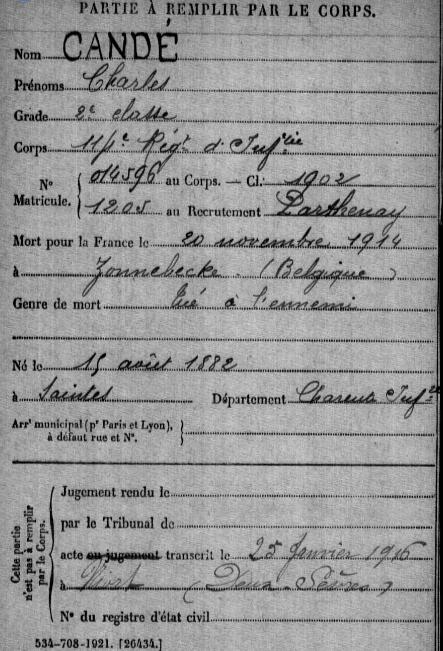 PARTIE À REMPLIR PAR LE CORPS.
Nom CANDÉ
Prénoms Charles
Grade 2e classe
Corps 114e Régt d'Infrie
No 014596 au Corps. — Cl. 1902
Matricule. 1205 au Recrutement Parthenay
Mort pour la France le 20 novembre 1914
à Zonnebecke (Belgique)
Genre de mort tué à l'ennemi
Né le 15 août 1882
à Saintes Département Charente Infre
Arrt municipal (pr Paris et Lyon),
à défaut rue et No.
Cette partie
n'est pas à remplir
par le Corps.
Jugement rendu le
par le Tribunal de
acte ou jugement transcrit le 25 Janvier 1916
à Niort (Deux-Sèvres)
No du registre d'état civil
534-708-1921. [26434.]